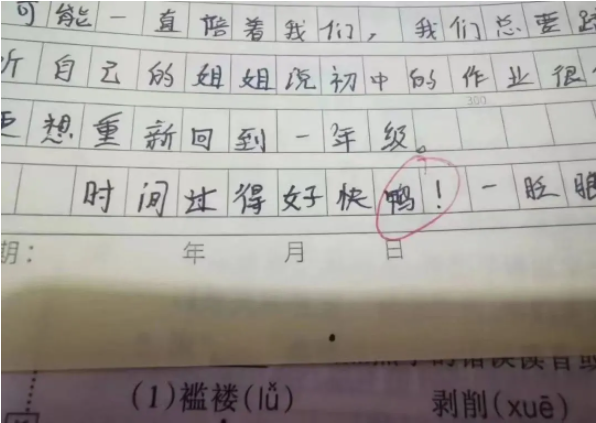 可能一直陪着我们，我们总要
听自己的姐姐说初中的作业很
300
想重新回到一年级。
时间过得好快鸭！一眨眼
期： 年 月 日
(1)褴褛(lǚ) 剥削(xuē)